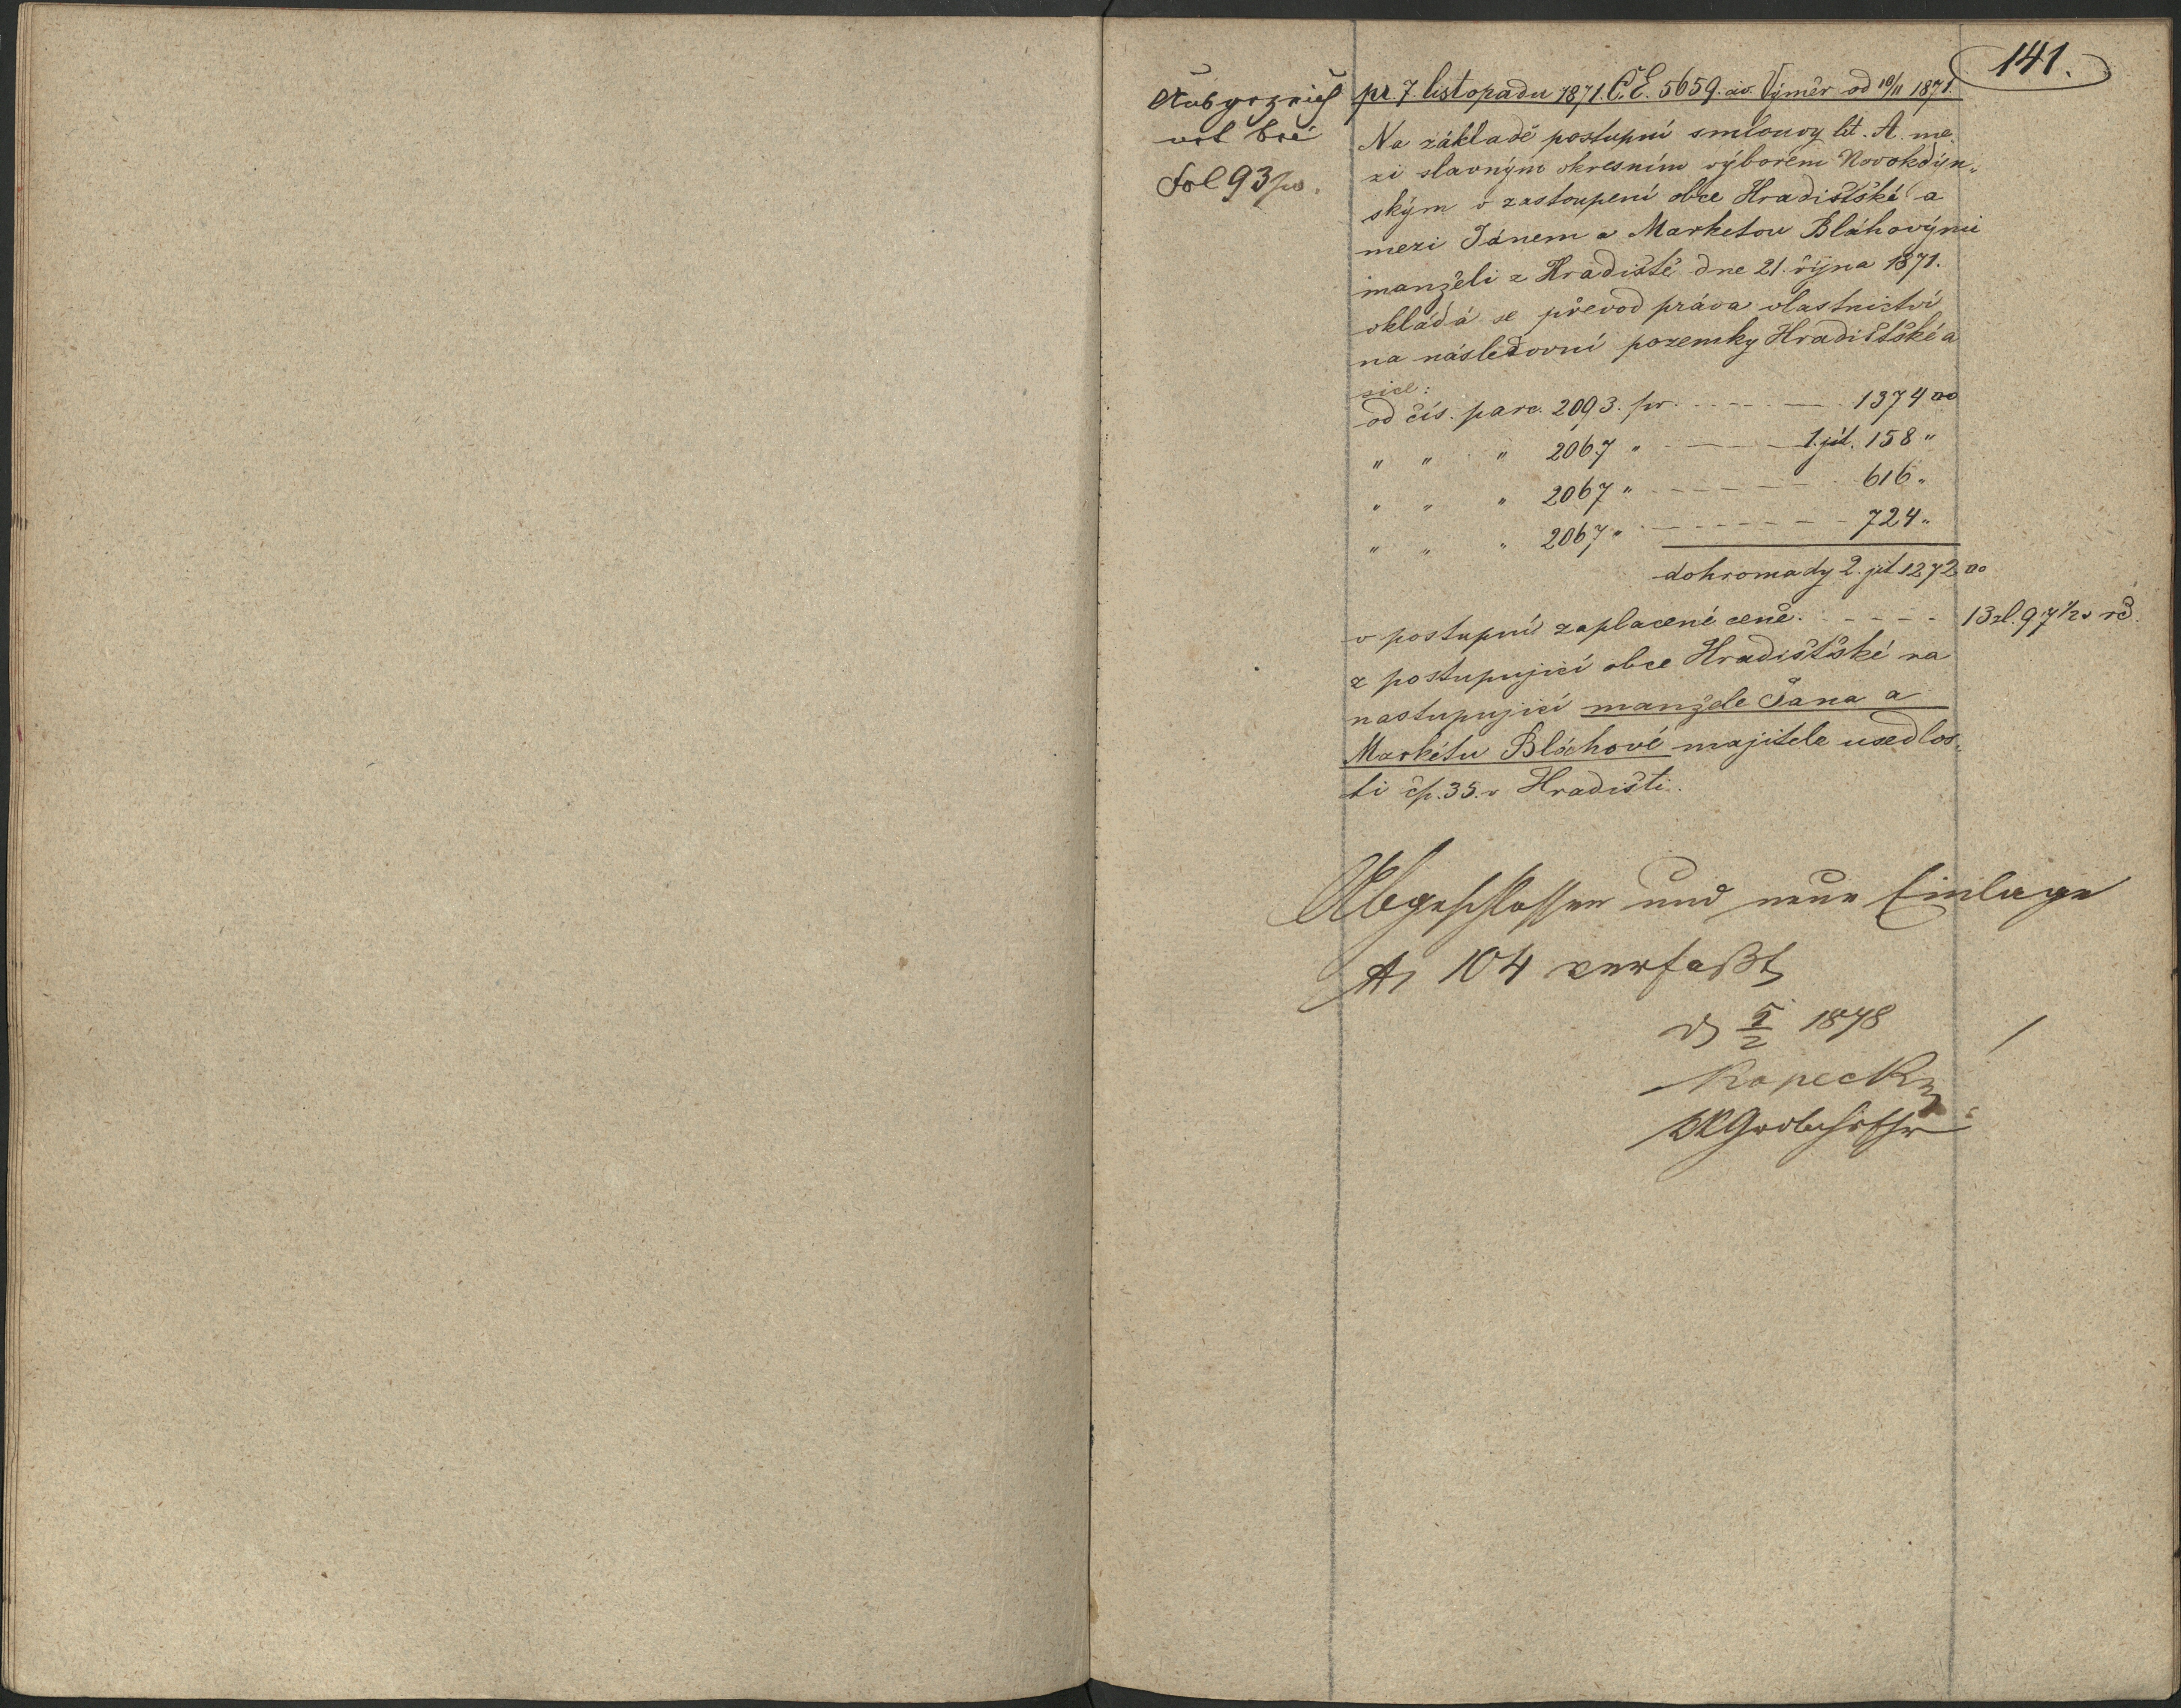 141.
Abgeschrieben
und bei
Fol 93 po.
pr. 7. listopadu 1871. Č.E. 5659. civ. Výměr od 10/11 1871.
Na základě postupní smlouvy lit. A. me-
zi slavným okresním výborem Novokdýn-
ským v zastoupení obce Hradišťské a
mezi Janem a Marketou Bláhovými
manželi z Hradiště dne 21. října 1871.
vkládá se převod práva vlastnictví
na následovní pozemky Hradišťské a
sice:
od čís. parc. 2093. pr. - - - - - 1374 □°
" " " 2067 " - - - - 1 jit. 158 "
" " " 2067 " - - - - - - 616 "
" " " 2067 " - - - - - - 724 "
dohromady 2. jit 1272 □°
v postupní zaplacené ceně. - - - - - 13 zl. 97 1/2 x rč.
z postupující obce Hradišťské na
nastupující manžele Jana a
Markétu Bláhové majitele usedlos-
ti čp. 35. v Hradišti.
Abgeschlossen und neue Einlage
104 verfaßt
1878
Kopecky